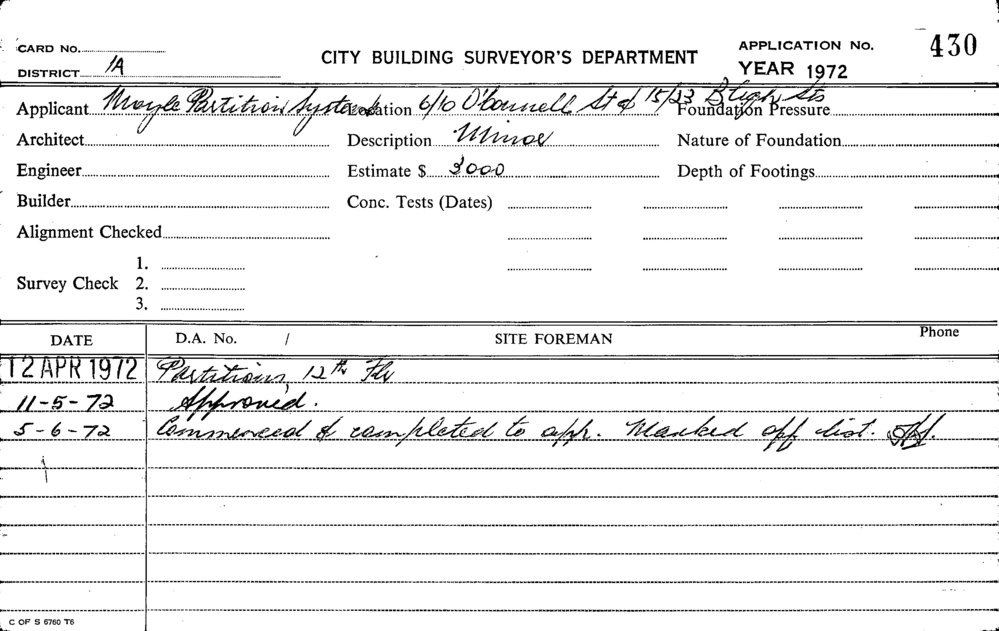 CARD No. CITY BUILDING SURVEYOR'S DEPARTMENT APPLICATION No. 430
DISTRICT 1A YEAR 1972
Applicant Moyle Partition Systems Location 6/10 O'Connell St & 15/23 Bligh Sts Foundation Pressure
Architect Description Minor Nature of Foundation
Engineer Estimate $ 3000 Depth of Footings
Builder Conc. Tests (Dates)
Alignment Checked
1.
Survey Check 2.
3.
DATE D.A. No. / SITE FOREMAN Phone
12 APR 1972 Partitions 12th Flr
11-5-72 Approved.
5-6-72 Commenced & completed to app. Marked off list.
C OF S 6760 T6